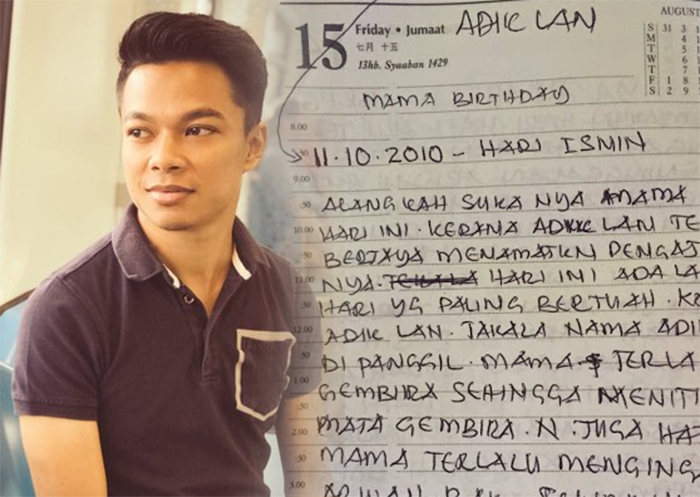 AUGUS
15 Friday • Jumaat ADIK LAN
七月 十五
13hb. Syaaban 1429
S 31 3
M 4
T 5
W 6
T 7
F 1 8
S 2 9
MAMA BIRTHDAY
8.00
11.10.2010 - HARI ISNIN
9.00
:30 ALANGKAH SUKA NYA MAMA
10.00 HARI INI. KERANA ADIK LAN TE
:30 BERJAYA MENAMATKN PENGAJ
NYA. HARI INI ADA LA
:30 HARI YG PALING BERTUAH. K
12.00 ADIK LAN. TAKALA NAMA ADI
:30 DI PANGGIL. MAMA TERLA
1.00 GEMBIRA SEHINGGA MENITI
:30 MATA GEMBIRA. N. JUGA HA
2.00 MAMA TERLALU MENGING
:30
3.00